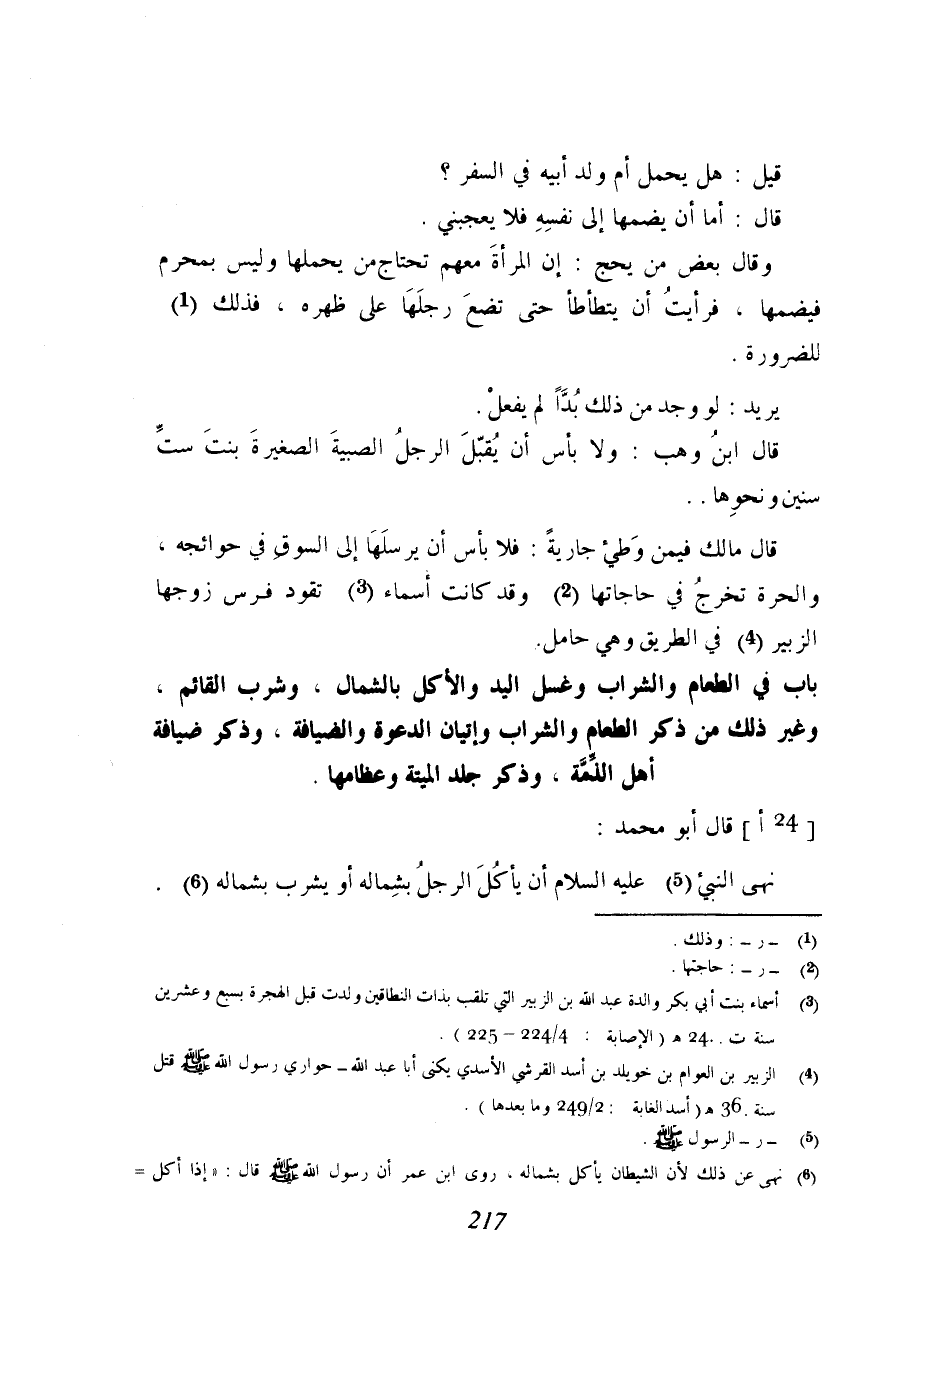 قيل : هل يحمل أم ولد أبيه في السفر ؟
قال : أما أن يضمها إلى نفسِهِ فلا يعجبني .
وقال بعض من يحج : إن المرأةَ معهم تحتاج من يحملها وليس بمحرم
فيضمها ، فرأيتُ أن يتطأطأ حتى تضعَ رجلَهَا على ظهره ، فذلك (1)
للضرورة .
يريد : لو وجد من ذلك بُدَّاً لم يفعلْ .
قال ابنُ وهب : ولا بأس أن يُقبّلَ الرجلُ الصبيةَ الصغيرةَ بنتَ ستِّ
سنين ونحوِها . .
قال مالك فيمن وَطئ جاريةً : فلا بأس أن يرسلَهَا إلى السوقِ في حوائجه ،
والحرة تخرجُ في حاجاتها (2) وقد كانت أسماء (3) تقود فرس زوجها
الزبير (4) في الطريق وهي حامل.
باب في الطعام والشراب وغسل اليد والأكل بالشمال ، وشرب القائم ،
وغير ذلك من ذكر الطعام والشراب وإتيان الدعوة والضيافة ، وذكر ضيافة
أهل الذِّمَّة ، وذكر جلد الميتة وعظامها .
[ 24 أ ] قال أبو محمد :
نهى النبيُ (5) عليه السلام أن يأكُلَ الرجلُ بشِماله أو يشرب بشماله (6) .
(1) – ر – : وذلك .
(2) – ر – : حاجتها .
(3) أسماء بنت أبي بكر والدة عبد الله بن الزبير التي تلقب بذات النطاقين ولدت قبل الهجرة بسبع وعشرين
سنة ت . 24 هـ ( الإصابة : 224/4 – 225 ) .
(4) الزبير بن العوام بن خويلد بن أسد القرشي الأسدي يكنى أبا عبد الله – حواري رسول الله ﷺ قتل
سنة . 36 هـ ( أسد الغابة : 249/2 وما بعدها ) .
(5) – ر – الرسول ﷺ .
(6) نهى عن ذلك لأن الشيطان يأكل بشماله . روى ابن عمر أن رسول الله ﷺ قال : « إذا أكل =
217